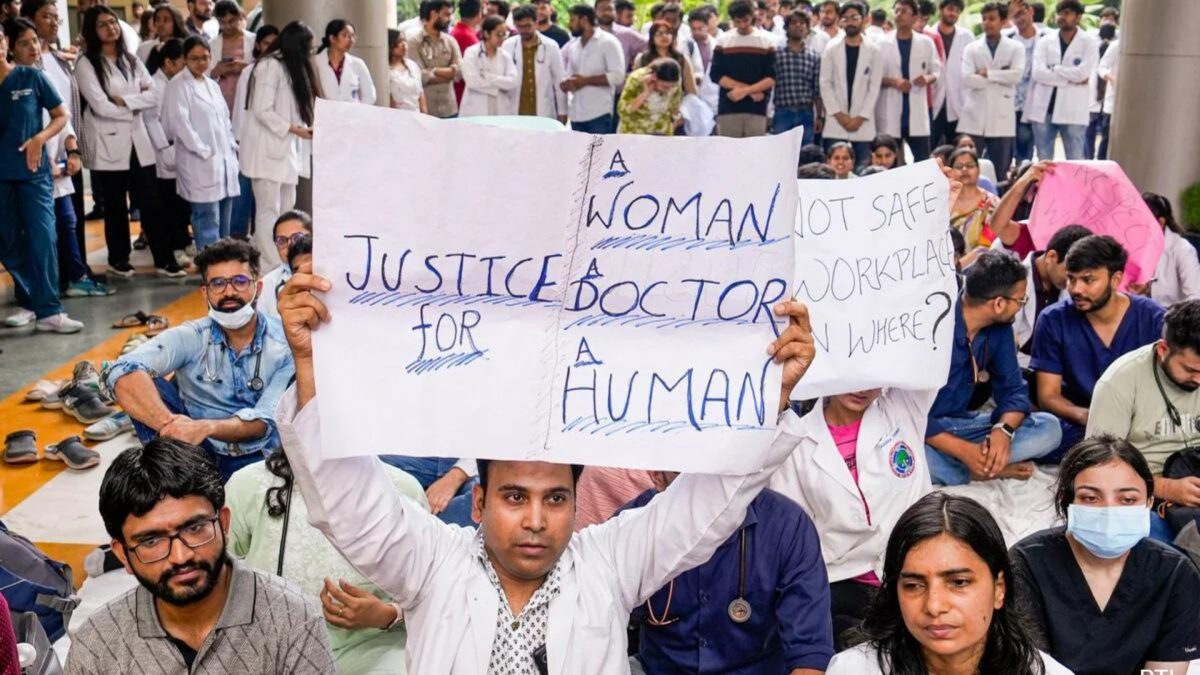 JUSTICE
fOR
A
WOMAN
A
DOCTOR
A
HUMAN
NOT SAFE
WORKPLACE
N WHERE?